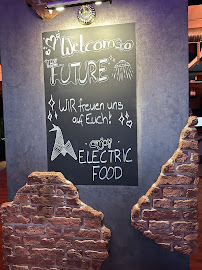 Welcome to
THE
FUTURE
WiR freuen uns
auf Euch!
enjoy
ELECTRIC
FOOD